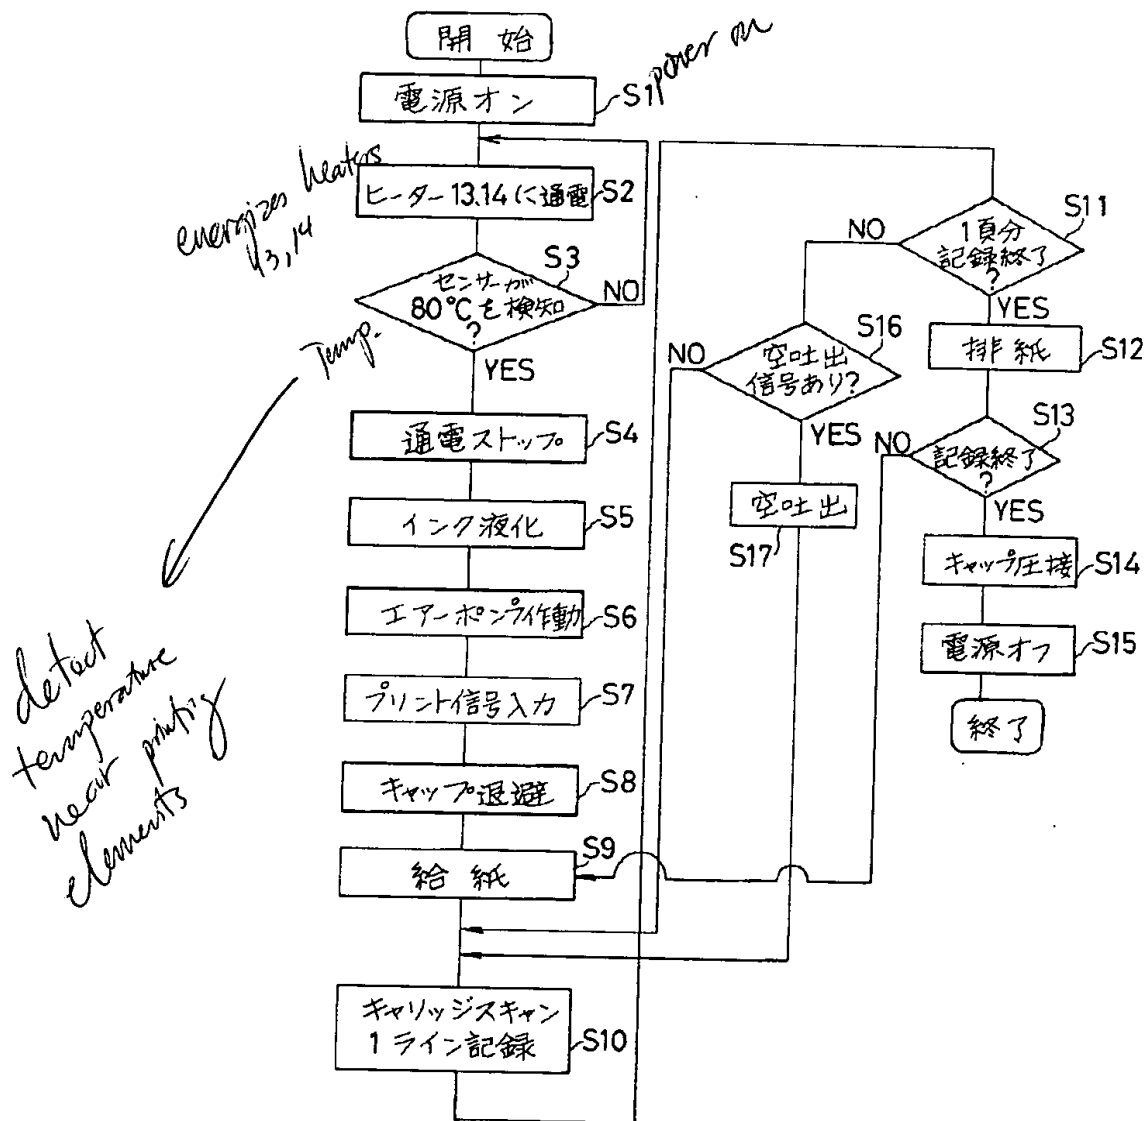 開始
電源オン
S1
power on
ヒーター13.14に通電
S2
energizes heaters
13,14
センサーが
80°Cを検知
?
S3
NO
YES
Temp.
detect
temperature
near printing
elements
通電ストップ
S4
インク液化
S5
エアーポンプ作動
S6
プリント信号入力
S7
キャップ退避
S8
給紙
S9
キャリッジスキャン
1ライン記録
S10
1頁分
記録終了
?
S11
NO
YES
排紙
S12
記録終了
?
S13
NO
YES
キャップ圧接
S14
電源オフ
S15
終了
空吐出
信号あり?
S16
NO
YES
空吐出
S17